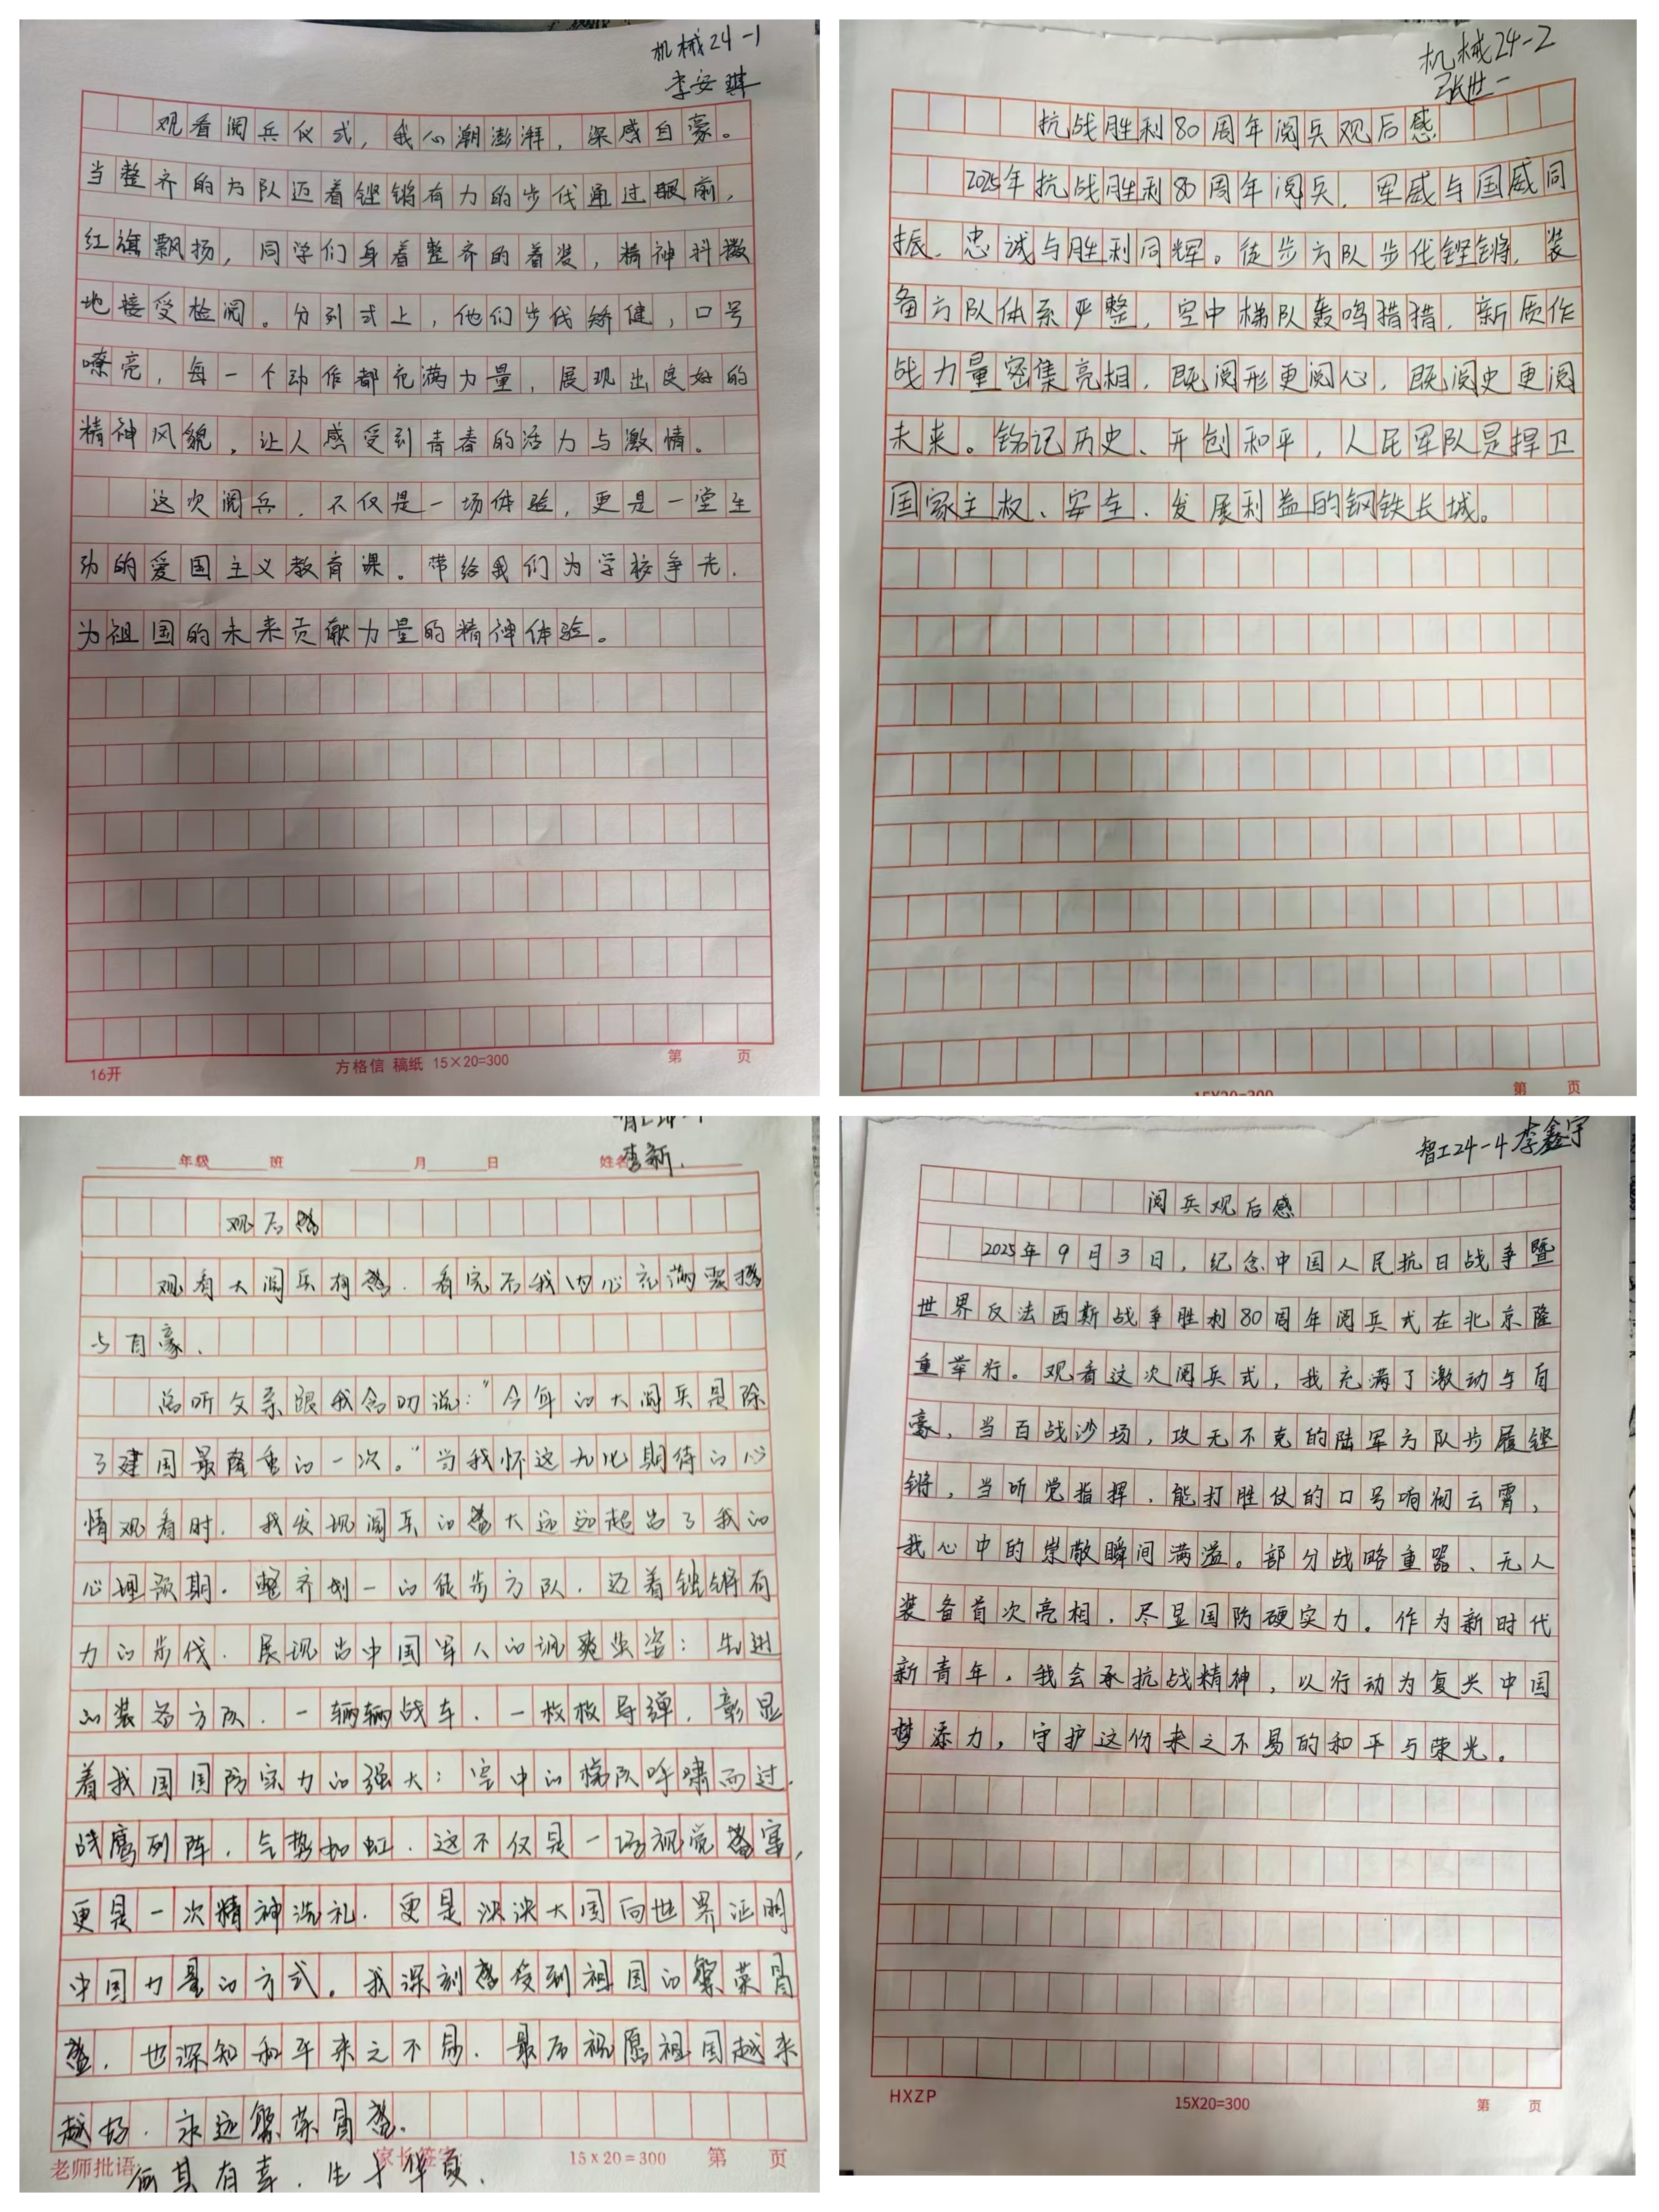 机械24-1
李安琪
观看阅兵仪式，我心潮澎湃，深感自豪。
当整齐的方队迈着铿锵有力的步伐通过眼前，
红旗飘扬，同学们身着整齐的着装，精神抖擞
地接受检阅。分列式上，他们步伐矫健，口号
嘹亮，每一个动作都充满力量，展现出良好的
精神风貌，让人感受到青春的活力与激情。
这次阅兵，不仅是一场体验，更是一堂生
动的爱国主义教育课。带给我们为学校争光，
为祖国的未来贡献力量的精神体验。
16开
方格信 稿纸 15×20=300
第 页
机械24-2
张世一
抗战胜利80周年阅兵观后感
2025年抗战胜利80周年阅兵，军威与国威同
振，忠诚与胜利同辉。徒步方队步伐铿锵，装
备方队体系严整，空中梯队轰鸣猎猎，新质作
战力量密集亮相，既阅形更阅心，既阅史更阅
未来。铭记历史、开创和平，人民军队是捍卫
国家主权、安全、发展利益的钢铁长城。
15X20=300
第 页
李新
年级 班 月 日 姓名
观后感
观看大阅兵有感，看完后我内心充满震撼
与自豪。
总听父亲跟我念叨说：“今年的大阅兵是除
了建国最隆重的一次。”当我怀这无比期待的心
情观看时，我发现阅兵的盛大远远超出了我的
心理预期。整齐划一的徒步方队，迈着铿锵有
力的步伐，展现出中国军人的飒爽英姿；先进
的装备方队，一辆辆战车，一枚枚导弹，彰显
着我国国防实力的强大；空中的梯队呼啸而过，
战鹰列阵，气势如虹，这不仅是一场视觉盛宴，
更是一次精神洗礼，更是泱泱大国向世界证明
中国力量的方式。我深刻感受到祖国的繁荣昌
盛，也深知和平来之不易，最后祝愿祖国越来
越好，永远繁荣昌盛。
老师批语
家长签字：
15×20=300 第 页
何其有幸，生于华夏，
智工24-4 李鑫宇
阅兵观后感
2025年9月3日，纪念中国人民抗日战争暨
世界反法西斯战争胜利80周年阅兵式在北京隆
重举行。观看这次阅兵式，我充满了激动与自
豪，当百战沙场，攻无不克的陆军方队步履铿
锵，当听党指挥、能打胜仗的口号响彻云霄，
我心中的崇敬瞬间满溢。部分战略重器、无人
装备首次亮相，尽显国防硬实力。作为新时代
新青年，我会承抗战精神，以行动为复兴中国
梦添力，守护这份来之不易的和平与荣光。
HXZP
15X20=300
第 页